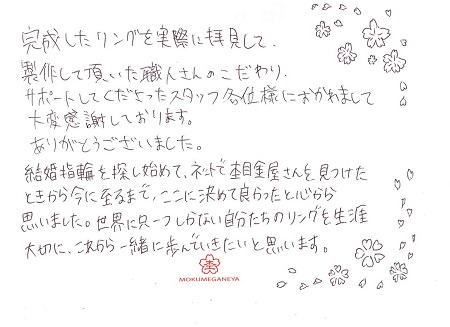 完成したリングを実際に拝見して、
製作して頂いた職人さんのこだわり、
サポートしてくださったスタッフ各位様におかれまして
大変感謝しております。
ありがとうございました。
結婚指輪を探し始めて、ネットで杢目金屋さんを見つけた
ときから今に至るまで、ここに決めて良かったと心から
思いました。世界に只一つしかない自分たちのリングを生涯
大切に、これから一緒に歩んでいきたいと思います。
MOKUMEGANEYA